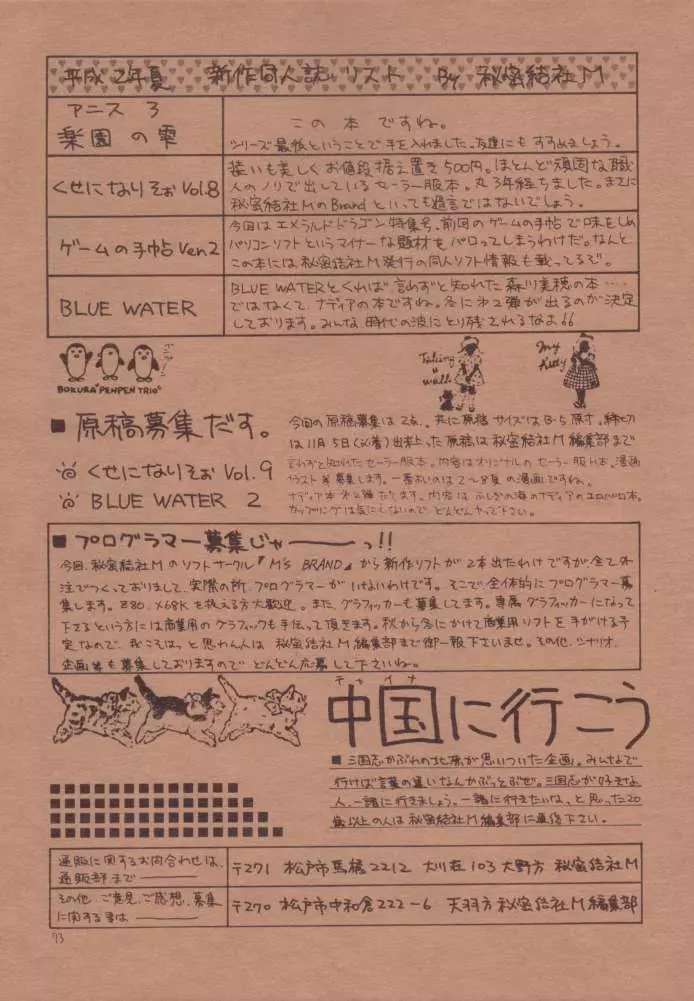 平成2年夏 新作同人誌リスト By 秘密結社M
アニス 3
楽園の雫
この本ですね。
シリーズ最後ということで手を入れました。友達にもすすめましょう。
くせになりそぉ Vol.8
装いも美しくお値段据え置き500円。ほとんど頑固な職
人のノリで出しているセーラー服本。丸3年経ちました。まさに
秘密結社MのBrandといっても過言ではないでしょう。
ゲームの手帖 Ven2
今回はエメラルドドラゴン特集号。前回のゲームの手帖で味をしめ
パソコンソフトというマイナーな題材をパロってしまうわけだ。なんと
この本には秘密結社M発行の同人ソフト情報も載ってるぞ。
BLUE WATER
BLUE WATERとくれば言わずと知れた森川美穂の本‥‥
ではなくて、ナディアの本ですね。冬にネ2弾が出るのが決定
しております。みんな時代の波にとり残されるなよ
BOKURA PENPEN TRIO
Taking a walk
My Kitty
■ 原稿募集だす。
くせになりそぉ Vol.9
BLUE WATER 2
今回の原稿募集は2点。共に原稿サイズはB-5原寸。締切
は11月5日(必着)出来上った原稿は秘密結社M編集部まで
言わずと知れたセーラー服本。内容はオリジナルのセーラー服H本。漫画
イラスト等募集します。一番ほしいのは2〜8頁の漫画ですね。
ナディア本ネ2弾だします。内容はふしぎの海のナディアのエロパロ本。
カップリングは気にしないのでどんどんやって下さい。
■ プログラマー募集じゃ――っ!!
今回、秘密結社Mのソフトサークル『M's BRAND』から新作ソフトが2本出たわけですが、全て外
注でつくっておりまして、実際の所、プログラマーがいないわけです。そこで、全体的にプログラマー募
集します。Z80、X68Kを扱える方大歓迎。また、グラフィッカーも募集してます。専属グラフィッカーになって
下さるという方には商業用のグラフィックも手伝って頂きます。秋から冬にかけて商業用ソフトを手がける予
定なので、我こそはっと思わん人は秘密結社M編集部まで御一報下さいませ。その他、シナリオ、
企画等も募集しておりますのでどんどん応募して下さいね。
チャイナ
中国に行こう
■ 三国志かぶれの が思いついた企画。みんなで
行けば言葉の違いなんかぶっとぶぜ。三国志が好きな
人、一諸に行きましょう。一諸に行きたいな、と思った20
歳以上の人は秘密結社M編集部に返信下さい。
通販に関するお問合わせは、
通販部まで――
〒271 松戸市馬橋2212 大川荘103 大野方 秘密結社M
その他、ご意見、ご感想、募集
に関する事は――
〒270 松戸市中和倉222-6 天羽方 秘密結社M編集部
73